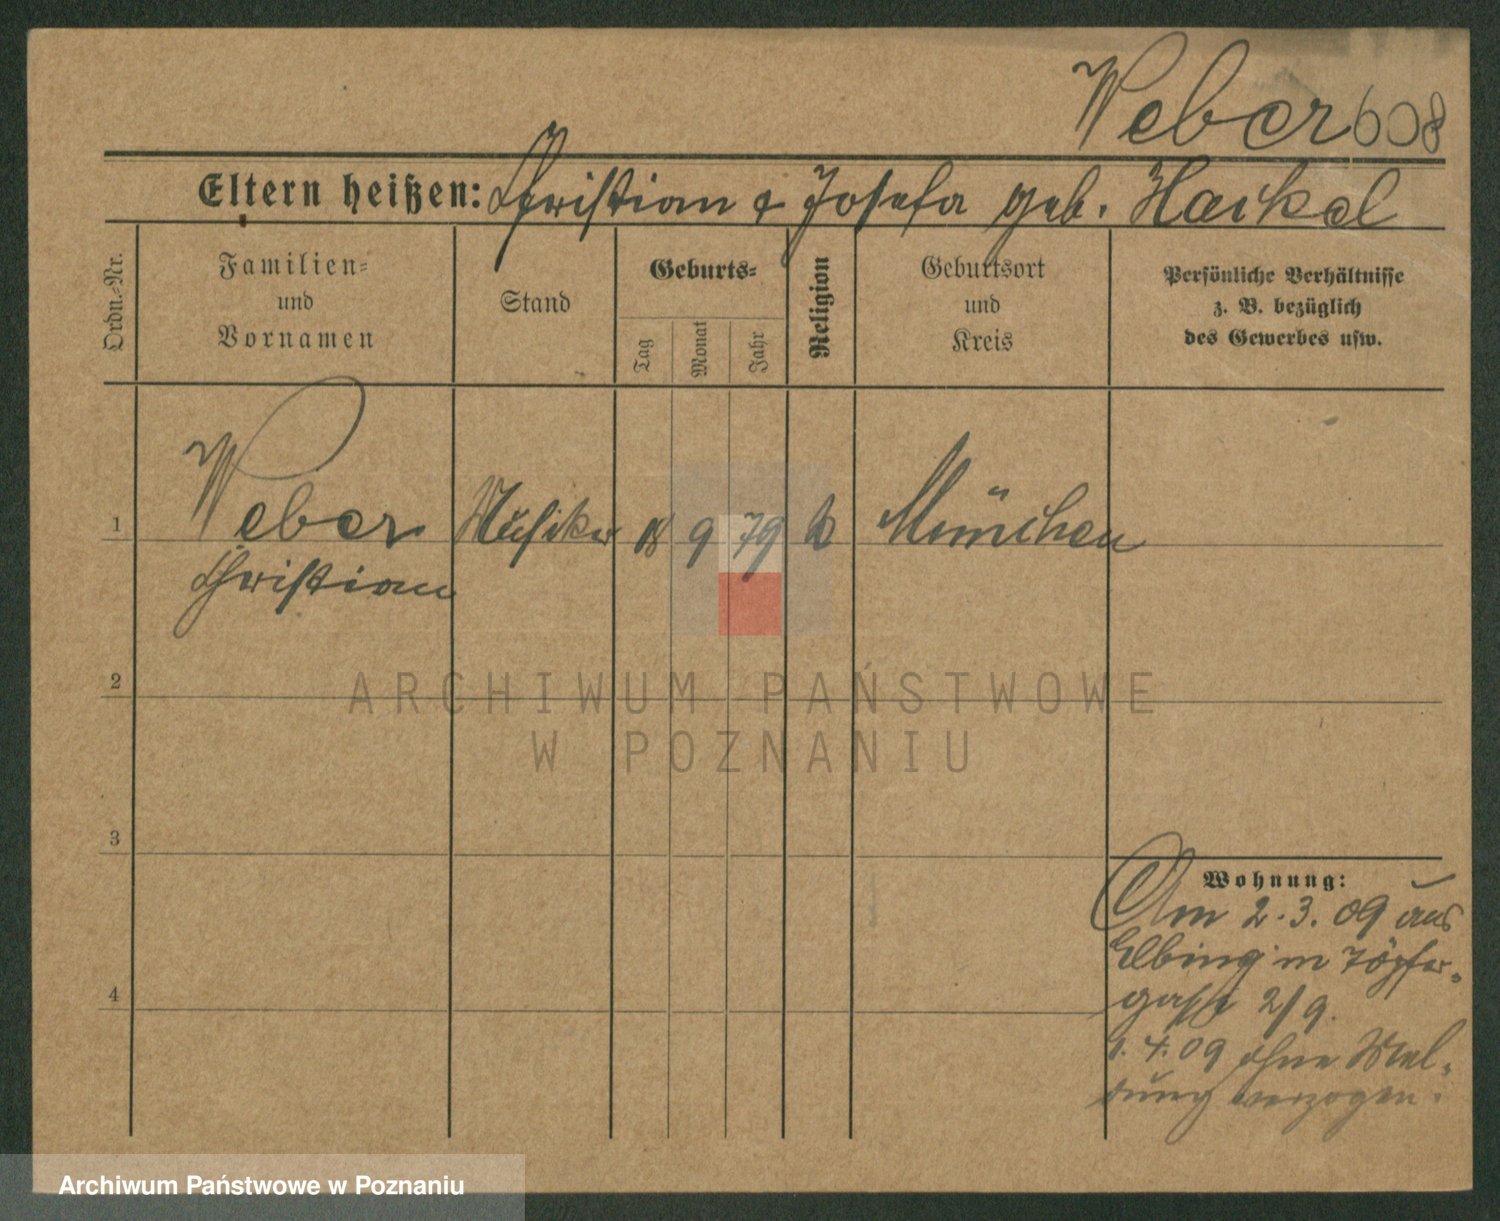 Weber 608
Eltern heißen: Christian & Josefa geb. Hackel
Ordn.-Nr.
Familien-
und
Vornamen
Stand
Geburts-
Tag
Monat
Jahr
Religion
Geburtsort
und
Kreis
Persönliche Verhältnisse
z. B. bezüglich
des Gewerbes usw.
1 Weber Musiker 18 9 79 k München
Christian
2
3
4
ARCHIWUM PAŃSTWOWE
W POZNANIU
Wohnung:
Am 2.3.09 aus
Elbing in Töpfer-
gasse 2/9.
1.4.09 ohne Mel-
dung verzogen.
Archiwum Państwowe w Poznaniu